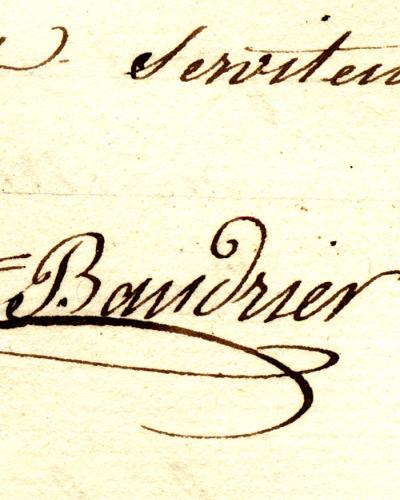 Serviteu
Baudrier